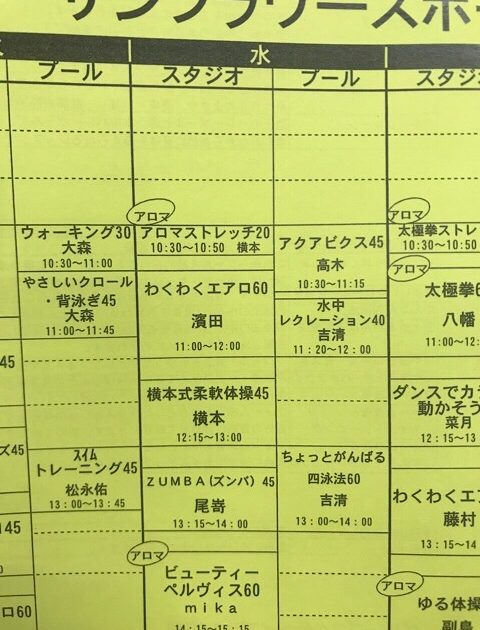 サンフラワースポー
水
プール
スタジオ
プール
スタジ
ウォーキング30
大森
10:30～11:00
やさしいクロール
・背泳ぎ45
大森
11:00～11:45
スイム
トレーニング45
松永佑
13:00～13:45
アロマ
アロマストレッチ20
10:30～10:50 横本
わくわくエアロ60
濱田
11:00～12:00
横本式柔軟体操45
横本
12:15～13:00
ZUMBA(ズンバ) 45
尾嵜
13:15～14:00
アロマ
ビューティー
ペルヴィス60
mika
14:15～15:15
アクアビクス45
高木
10:30～11:15
水中
レクレーション40
吉清
11:20～12:00
ちょっとがんばる
四泳法60
吉清
13:00～14:00
アロマ
太極拳ストレ
10:30～10:50
アロマ
太極拳6
八幡
11:00～12:
ダンスでカラ
動かそう
菜月
12:15～13
わくわくエア
藤村
13:15～14
アロマ
ゆる体操
副島
45
ズ45
145
ロ60